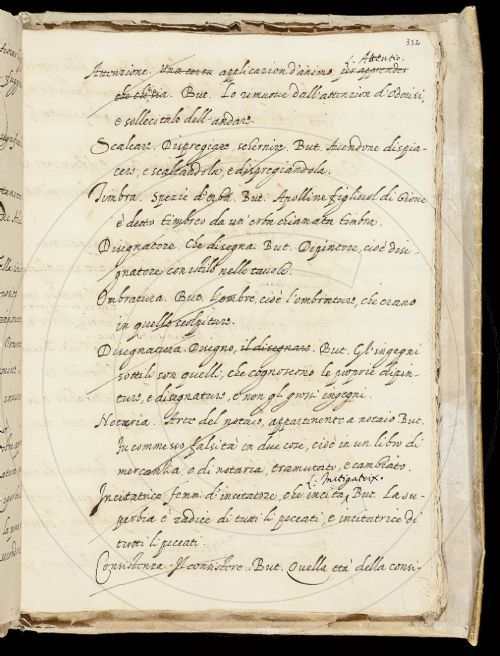 332
l. Attentio.
Attenzione. Una certa applicazion d'animo, per apprender
che che sia. But. Lo rimuove dall'attenzion d'Oderisi,
e sollecitalo dell'andare.
Scalcare. Dispregiare, schernire. But. Avendone dispia-
cere, e scalcandola, e dispregiandola.
Timbra. Spezie d'erba. But. Apolline figliuol di Giove
è detto timbreo da un'erba chiamata timbra.
Disegnatore. Che disegna. But. Depintore, cioè dise-
gnatore con istilo nelle tavole.
Ombratura. But. L'ombre, cioè l'ombrature, che erano
in quelle scolpiture.
Disegnatura. Disegno, il disegnare. But. Gl'ingegni
sottili son quelli, che cognoscono le proprie dipin-
ture, e disegnature, e non gli grossi ingegni.
Notaria. Arte del notaio, appartenente a notaio But.
Fu commesso falsità in due cose, cioè in un libro di
mercanzia, o di notaria, tramutato, e cambiato.
l. Instigatrix.
Incitatrice femm. d'incitatore, che incita. But. La su-
perbia è radice di tutti li peccati, e incitatrice di
tutti li peccati.
Consistenza. Il consistere. But. Quella età della consi-